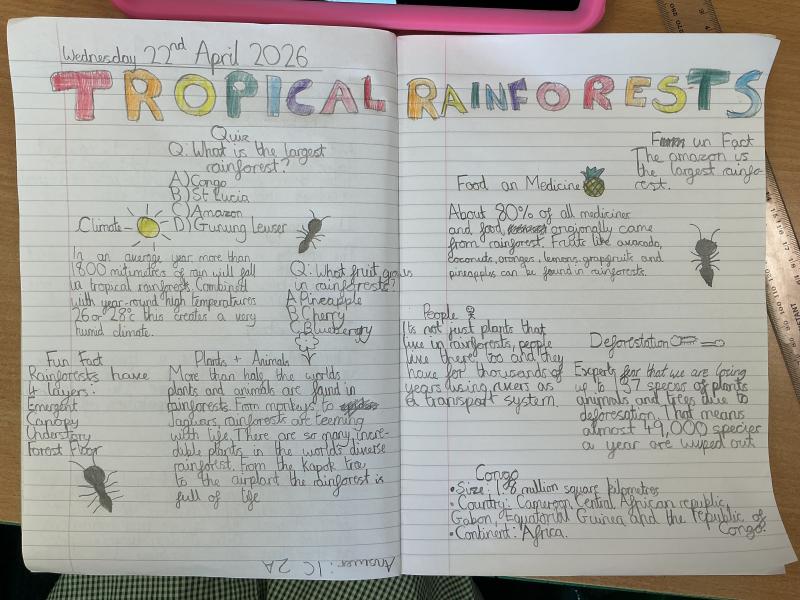 Wednesday 22nd April 2026
TROPICAL RAINFORESTS
Quiz
Q: What is the largest
rainforest?
A) Congo
B) St Lucia
C) Amazon
D) Gunung Leuser
Climate
In an average year more than
1800 milimitres of rain will fall
in tropical rainforests. Combined
with year-round high temperatures
26 or 28°c this creates a very
humid climate.
Q: What fruit grows
in rainforests?
A Pineapple
B Cherry
C Blueberry
Fun Fact
Rainforests have
4 layers:
Emergent
Canopy
Understory
Forest Floor
Plants + Animals
More than half the worlds
plants and animals are found in
rainforests. From monkeys to
Jaguars, rainforests are teeming
with life. There are so many incre-
dible plants in the worlds diverse
rainforest. From the Kapok tree
to the airplant the rainforest is
full of life
Answer: 1C 2A
un Fact
The amazon is
the largest rainfo-
rest.
Food an Medicine
About 80% of all mediciner
and food origionally came
from rainforest. Fruits like avacado,
coconuts, oranges, lemons, grapefruits and
pineapples can be found in rainforests.
People
It's not just plants that
live in rainforests, people
live there too and they
have for thousands of
years using rivers as
a transport system.
Deforestation
Experts fear that we are losing
up to 137 species of plants
animals and trees due to
deforesation. That means
almost 49,000 species
a year are wyped out
Congo
• Size: 1.8 million square kilometres
• Country: Cameroon, Central African republic,
Gabon, Equatorial Guinea and the republic of
Congo.
• Continent: Africa.